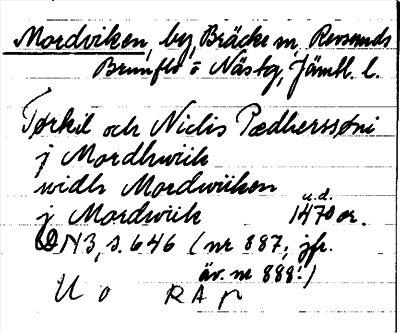 Mordviken, by, Bräcke sn, Revsunds
Brunflo o Näskg, Jämtl. l.
Tørkil och Niclis Pædherssøni
j Mordhwiik
widh Mordwiiken
u.d.
j Mordwiik 1470 or.
DN3, s. 646 (nr 887, jfr.
äv. nr 888!)
U o RAp